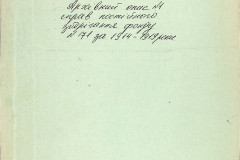 Архівний опис №1
справ постійного
зберігання фонду
№ 71 за 1914-1919 роки